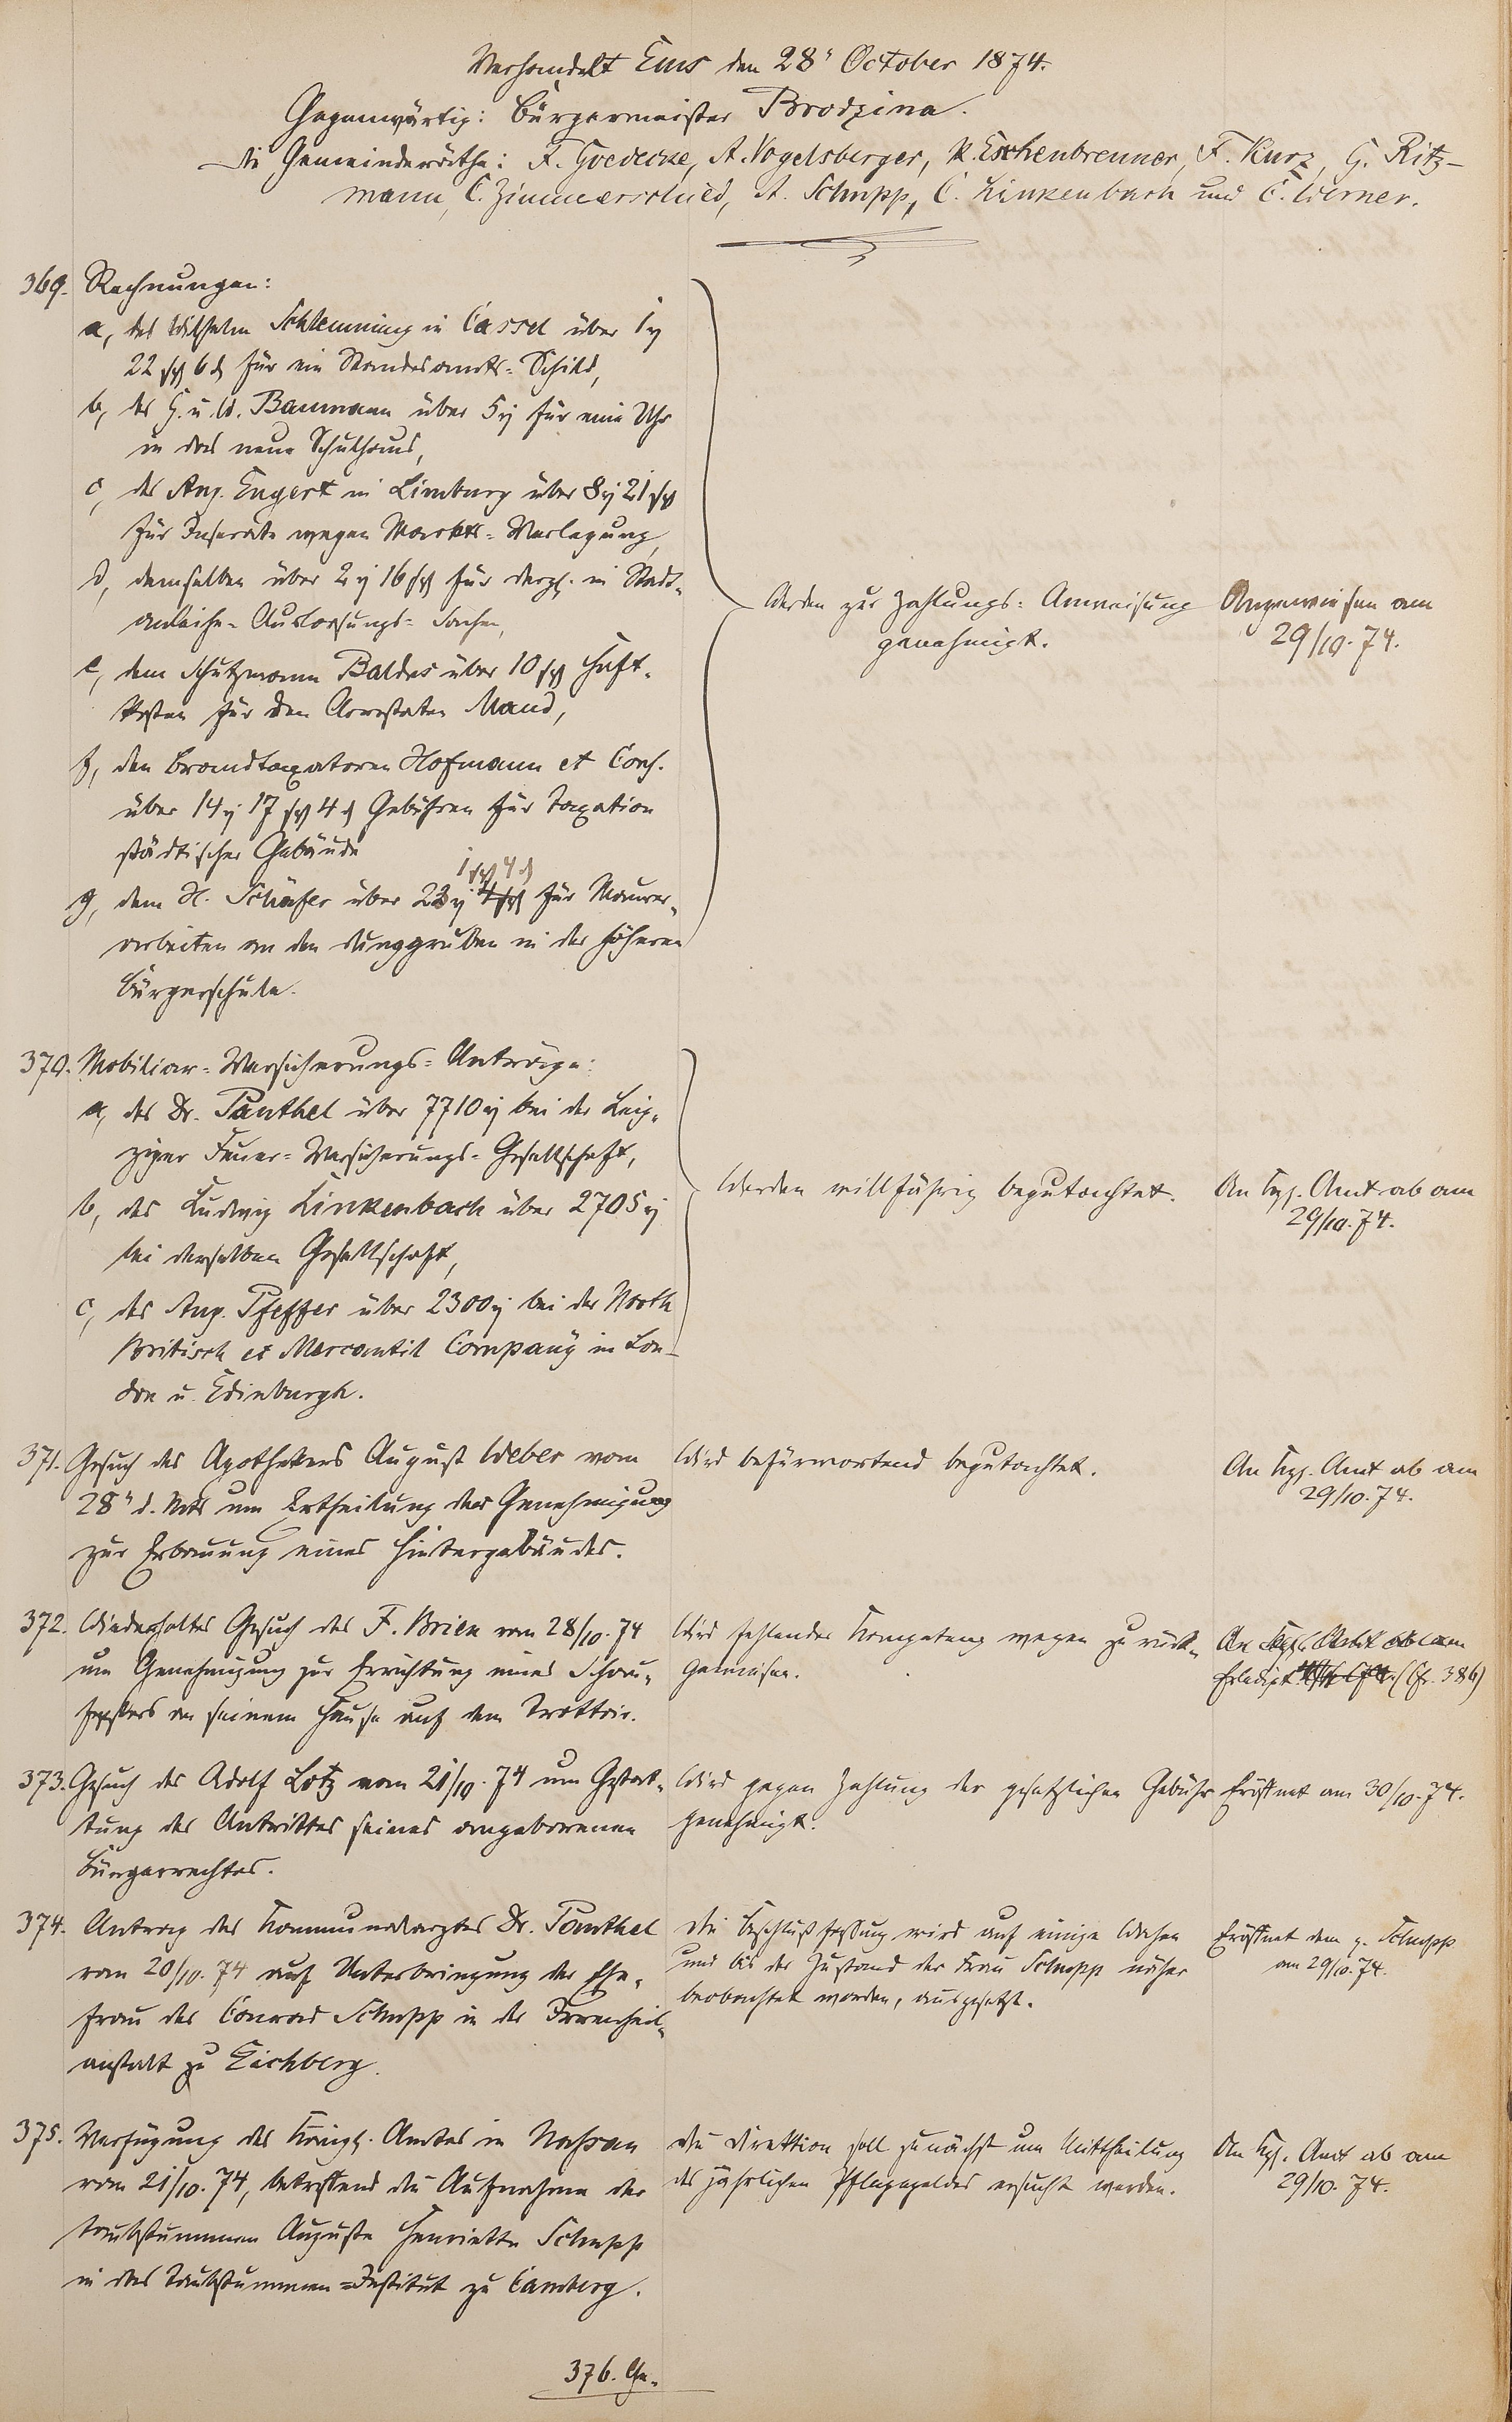 Verhandelt Ems den 28" October 1874.
Gegenwärtig: Bürgermeister Brodzina.
Die Gemeinderäthe: F. Goedecke, A. Vogelsberger, K. Eschenbrenner, F. Kurz, G. Ritz-
mann, C. Zimmerschied, A. Schupp, C. Linkenbach und C. Werner.
369. Rechnungen:
a, des Wilhelm Schlemming in Cassel über 1
22 sgr 6 d für ein Standesamts=Schild,
b, der G. u. W. Baumann über 5 für eine Uhr
in das neue Schulhaus,
c, des Aug. Engert in Limburg über 8 21 sgr
für Inserate wegen Markts=Verlegung,
d, demselben über 2 16 sgr für dergl. in Stadt-
anleihe=Ausloosungs=Sachen,
e, dem Schutzmann Baldes über 10 sgr Haft-
kosten für den Arrestaten Maud,
f, den Brandtaxatoren Hofmann et Cons.
über 14 17 sgr 4 d Gebühren für Taxation
städtischer Gebäude
1 sgr 4 d
g, dem H. Schäfer über 23 4 sgr für Maurer-
arbeiten an den Dunggruben in der höheren
Bürgerschule.
Werden zur Zahlungs=Anweisung
genehmigt.
Angewiesen am
29/10. 74.
370. Mobiliar=Versicherungs=Anträge:
a, des Dr. Panthel über 7710 bei der Leip-
ziger Feuer=Versicherungs=Gesellschaft,
b, des Ludwig Linkenbach über 2705
bei derselben Gesellschaft,
c, des Aug. Pfeffer über 2300 bei der North
British et Mercantil Company in Lon-
don u. Edinburgh.
Werden willfährig begutachtet.
An Kgl. Amt ab am
29/10. 74.
371. Gesuch des Apothekers August Weber vom
28" d. Mts um Ertheilung der Genehmigung
zur Erbauung eines Hintergebäudes.
Wird befürwortend begutachtet.
An Kgl. Amt ab am
29/10. 74.
372. Wiederholtes Gesuch des F. Brien vom 28/10. 74
um Genehmigung zur Errichtung eines Schau-
fensters an seinem Hause auf dem Trottoir.
Wird fehlender Kompetenz wegen zurück-
gewiesen.
An Kgl. Amt ab am
Erledigt (Cfr. 386)
373. Gesuch des Adolf Lotz vom 21/10. 74 um Gestat-
tung des Antrittes seines angeborenen
Bürgerrechtes.
Wird gegen Zahlung der gesetzlichen Gebühr
genehmigt.
Eröffnet am 30/10. 74.
374. Antrag des Kommunalarztes Dr. Panthel
vom 20/10. 74 auf Unterbringung der Ehe-
frau des Conrad Schupp in der Irrenheil-
anstalt zu Eichberg.
Die Beschlußfassung wird auf einige Wochen
und bis der Zustand der Frau Schupp näher
beobachtet worden, ausgesetzt.
Eröffnet dem p. Schupp
am 29/10. 74.
375. Verfügung des Königl. Amtes in Nassau
vom 21/10. 74, betreffend die Aufnahme der
taubstummen Auguste Henriette Schupp
in das Taubstummen=Institut zu Camberg.
Die Direktion soll zunächst um Mittheilung
des jährlichen Pflegegeldes ersucht werden.
An Kgl. Amt ab am
29/10. 74.
376. Ge-